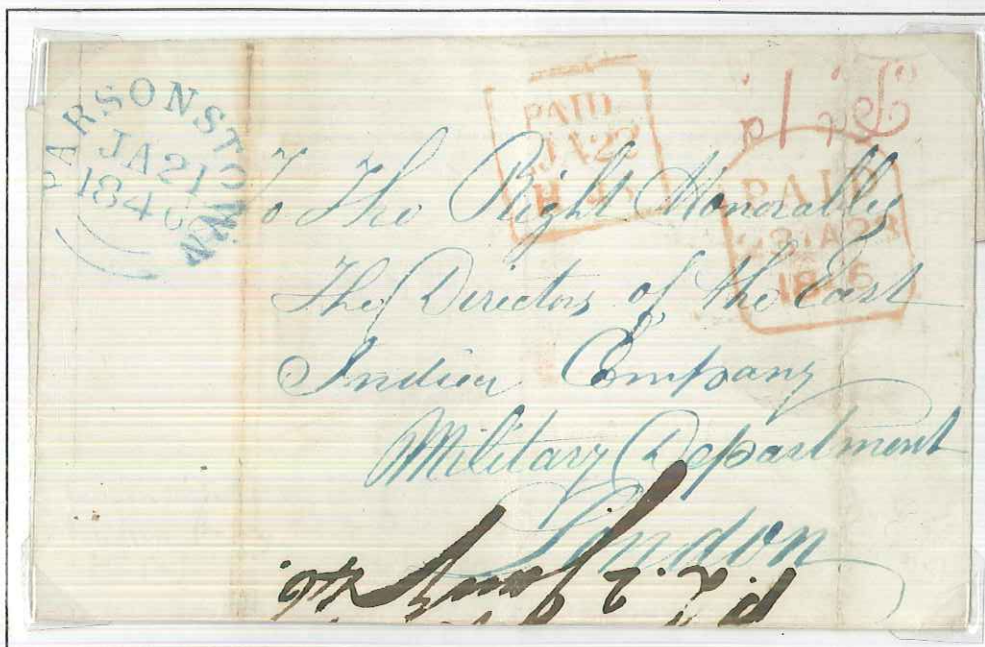 PARSONSTOWN
JA 21
1846
PAID
JA 22
PAID
23 JA 23
1846
To The Right Honorable
The Directors of the East
Indian Company
Military Department
London